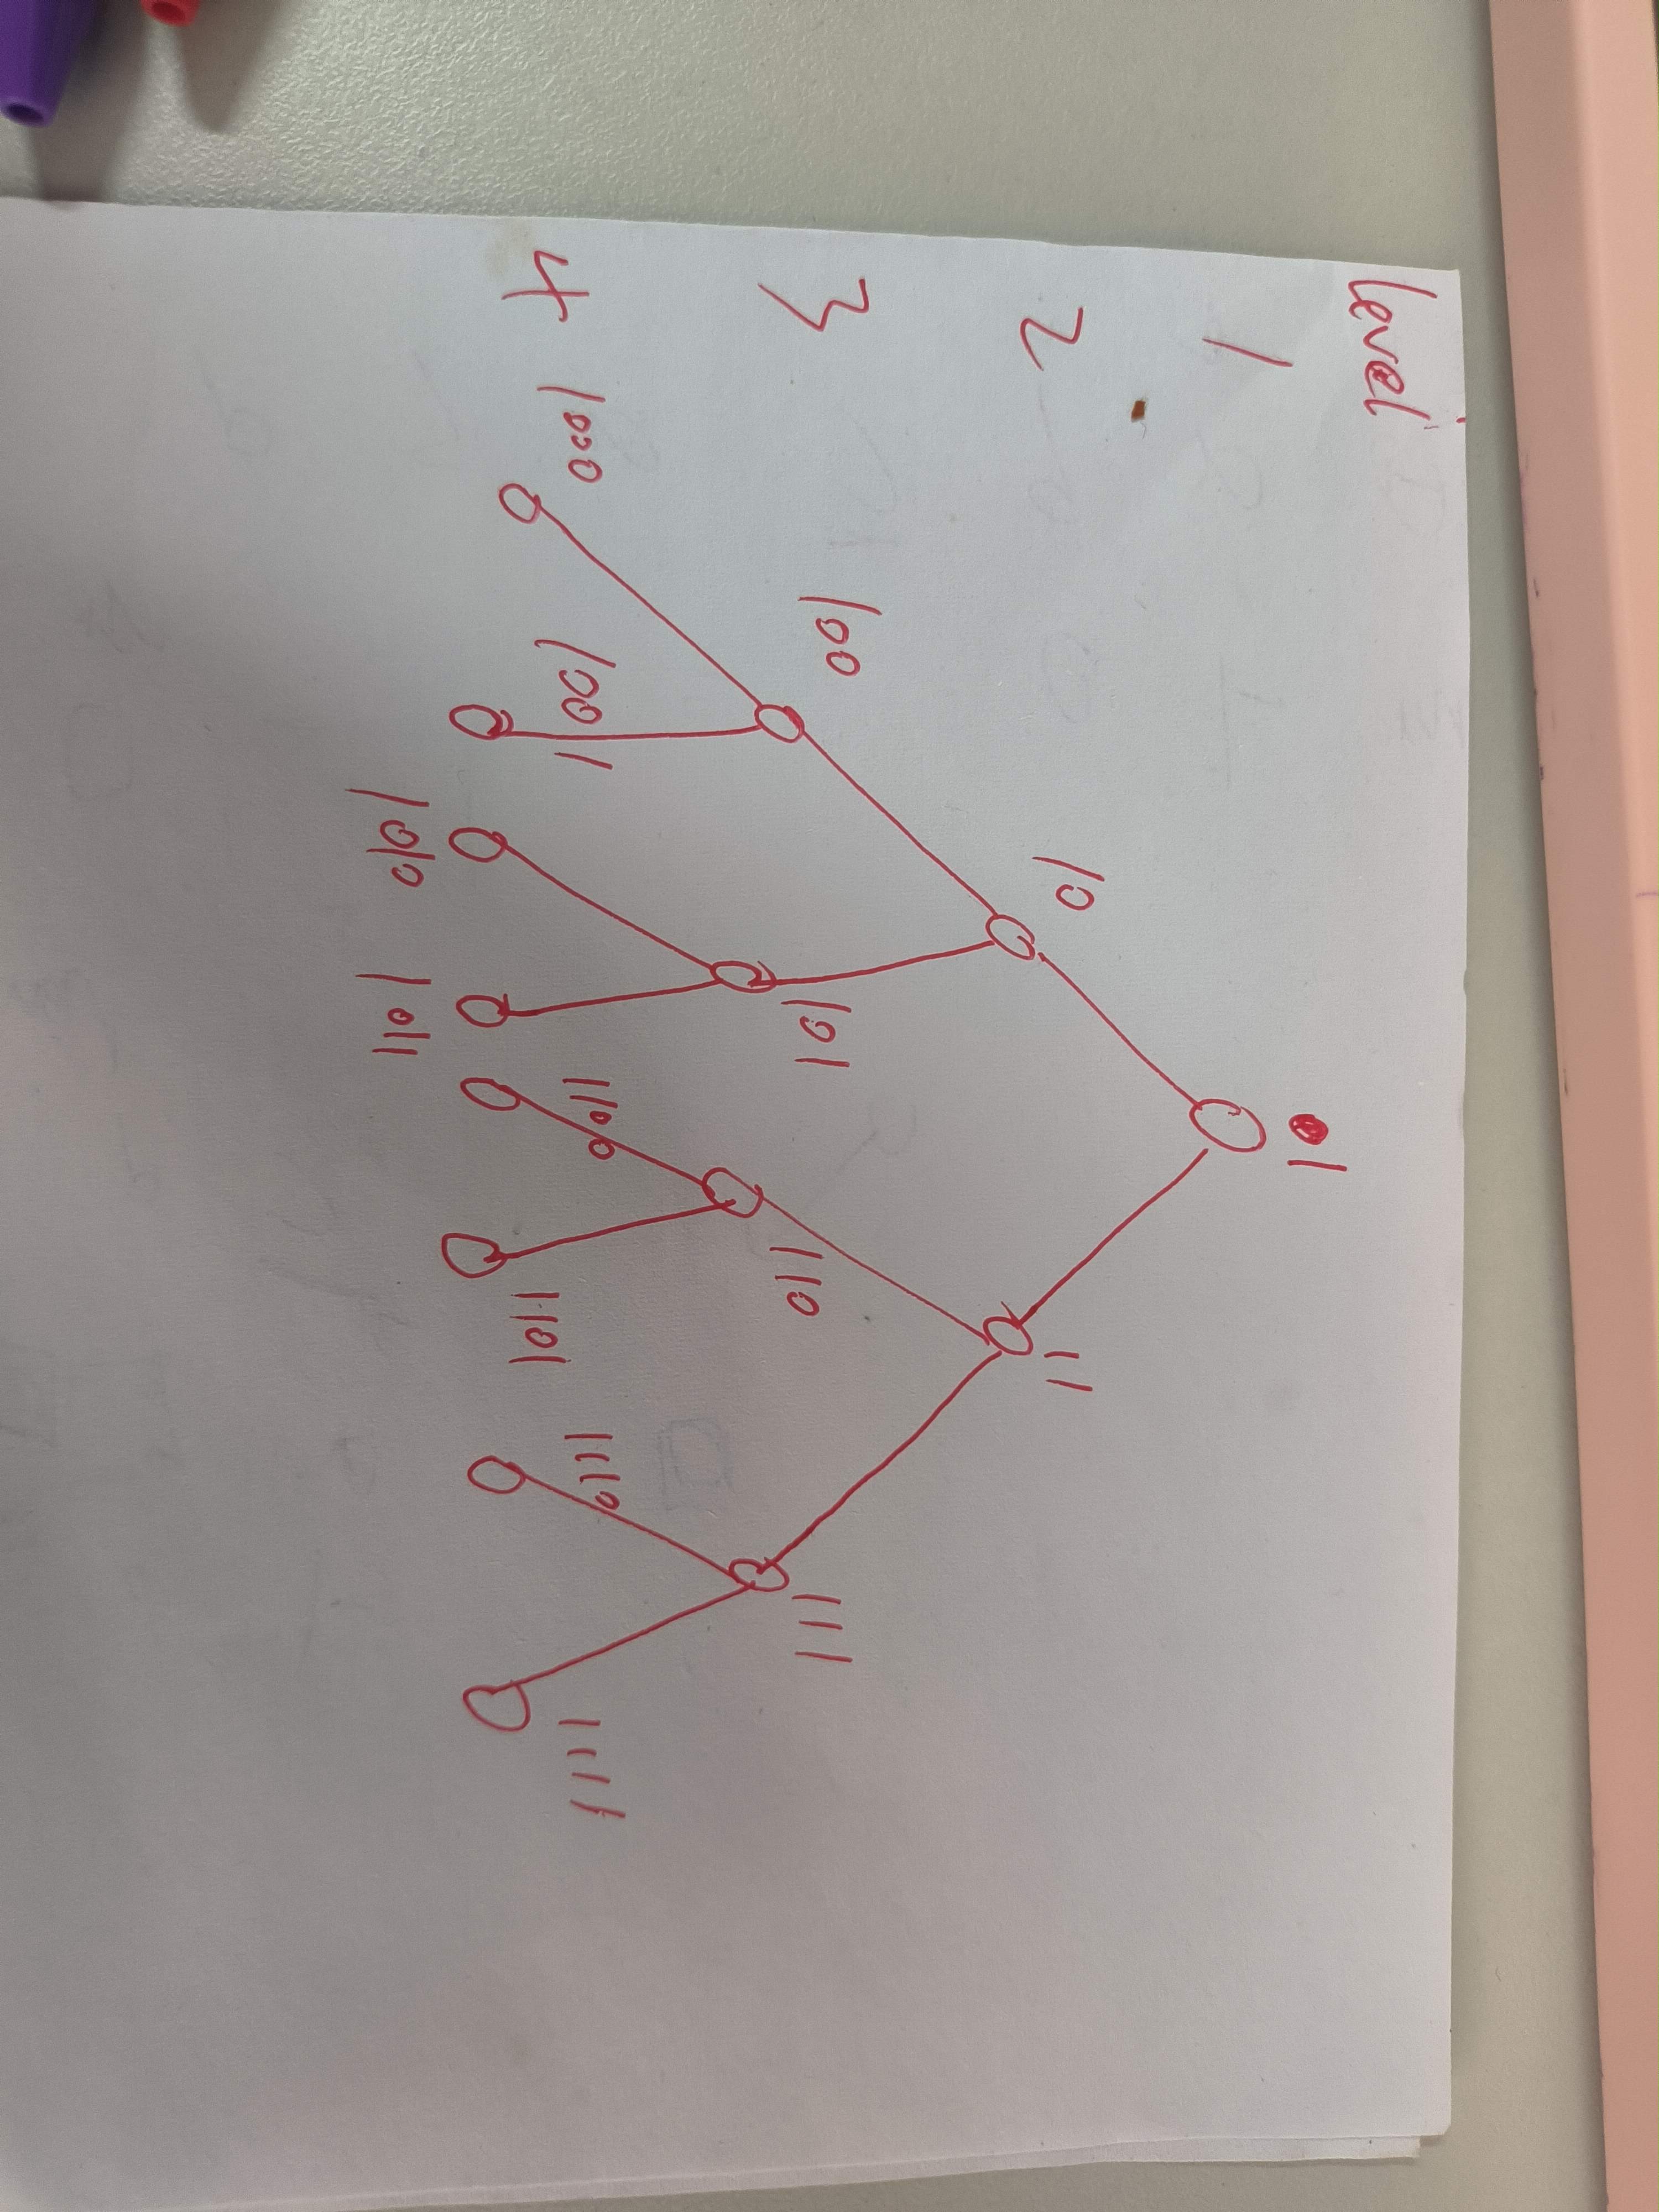 level
1
1
2
10
11
3
100
101
110
111
4
1000
1001
1100
1101
1110
1111
1010
1011